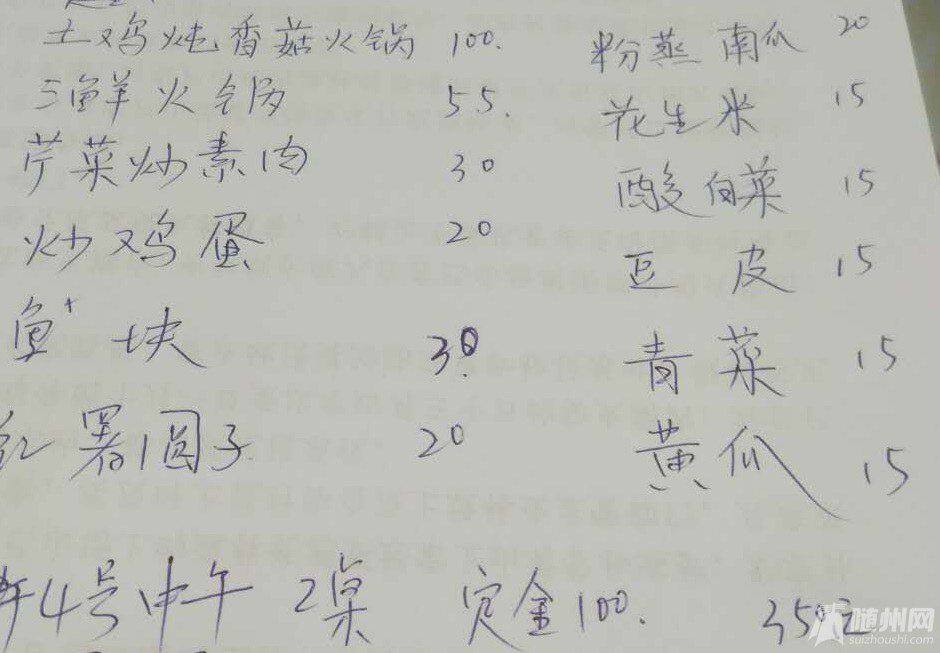 土鸡炖香菇火锅 100. 粉蒸南瓜 20
三鲜火锅 55. 花生米 15
芹菜炒素肉 30 酸白菜 15
炒鸡蛋 20 豆皮 15
鱼块 30. 青菜 15
红薯圆子 20 黄瓜 15
4号中午 2桌 定金100. 350元
随州网
suizhoushi.com